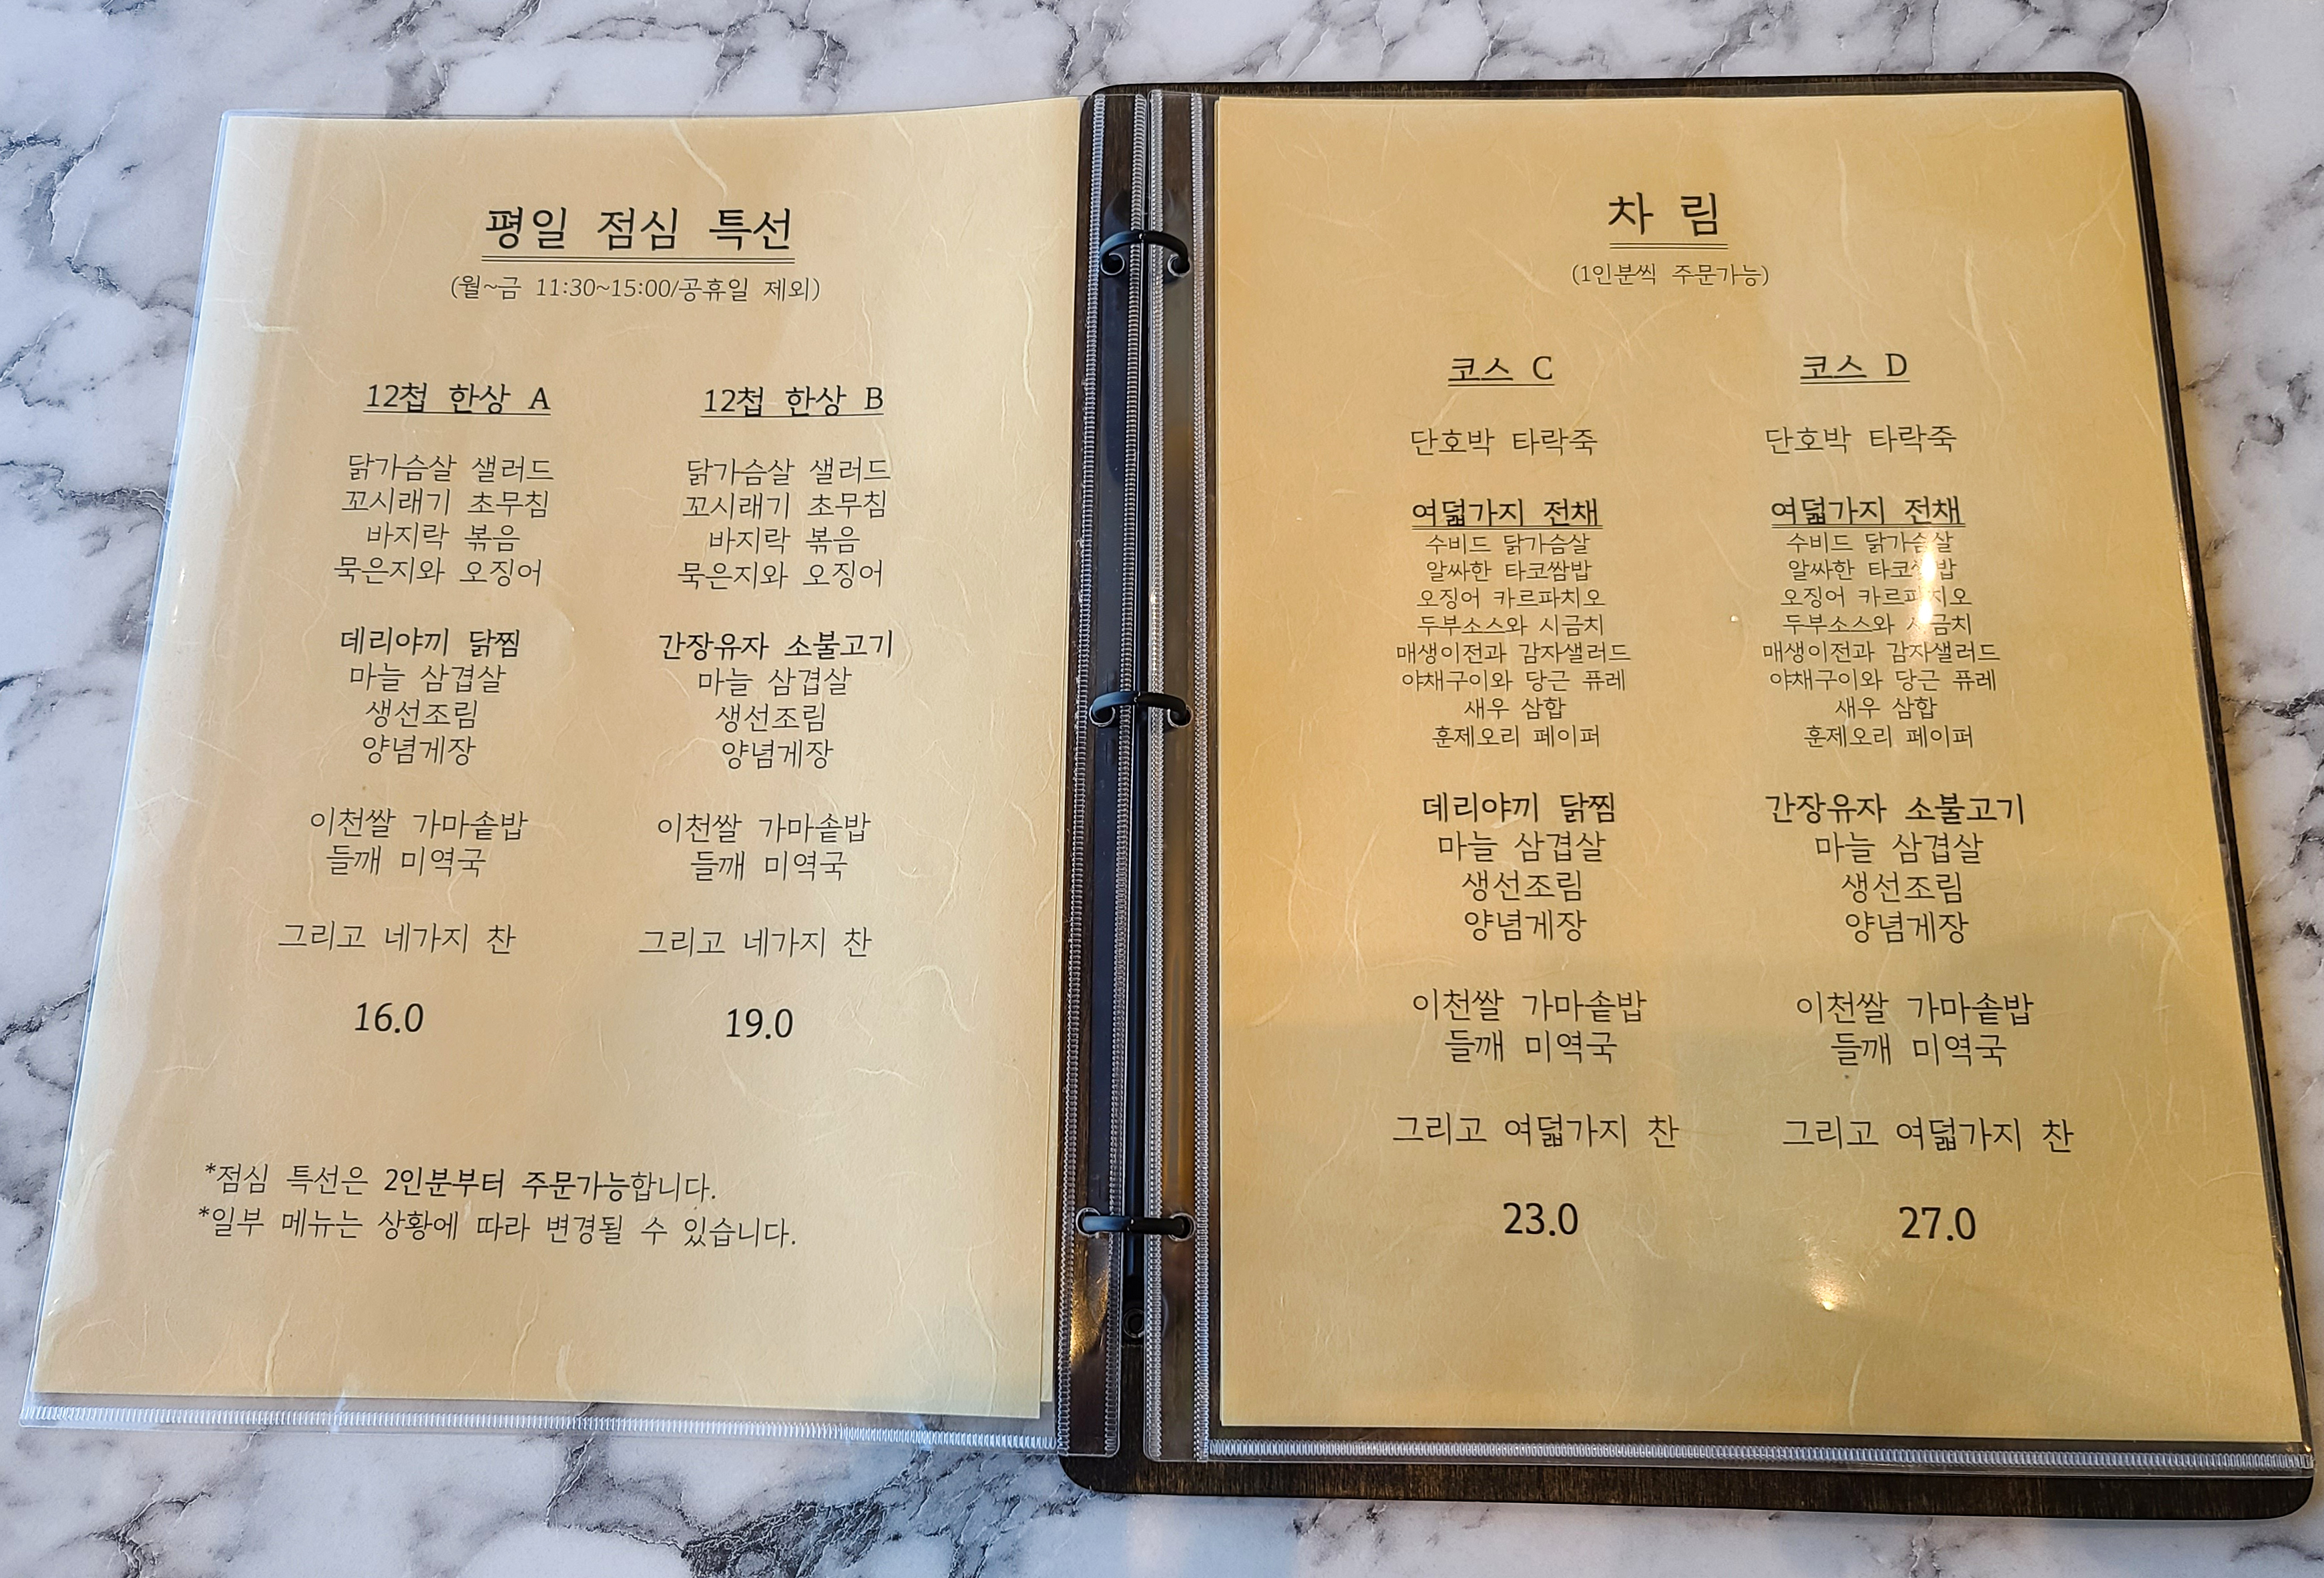 평일 점심 특선
(월~금 11:30~15:00/공휴일 제외)
12첩 한상 A
닭가슴살 샐러드
꼬시래기 초무침
바지락 볶음
묵은지와 오징어
데리야끼 닭찜
마늘 삼겹살
생선조림
양념게장
이천쌀 가마솥밥
들깨 미역국
그리고 네가지 찬
16.0
12첩 한상 B
닭가슴살 샐러드
꼬시래기 초무침
바지락 볶음
묵은지와 오징어
간장유자 소불고기
마늘 삼겹살
생선조림
양념게장
이천쌀 가마솥밥
들깨 미역국
그리고 네가지 찬
19.0
*점심 특선은 2인분부터 주문가능합니다.
*일부 메뉴는 상황에 따라 변경될 수 있습니다.
차 림
(1인분씩 주문가능)
코스 C
단호박 타락죽
여덟가지 전채
수비드 닭가슴살
알싸한 타코쌈밥
오징어 카르파치오
두부소스와 시금치
매생이전과 감자샐러드
야채구이와 당근 퓨레
새우 삼합
훈제오리 페이퍼
데리야끼 닭찜
마늘 삼겹살
생선조림
양념게장
이천쌀 가마솥밥
들깨 미역국
그리고 여덟가지 찬
23.0
코스 D
단호박 타락죽
여덟가지 전채
수비드 닭가슴살
알싸한 타코쌈밥
오징어 카르파치오
두부소스와 시금치
매생이전과 감자샐러드
야채구이와 당근 퓨레
새우 삼합
훈제오리 페이퍼
간장유자 소불고기
마늘 삼겹살
생선조림
양념게장
이천쌀 가마솥밥
들깨 미역국
그리고 여덟가지 찬
27.0